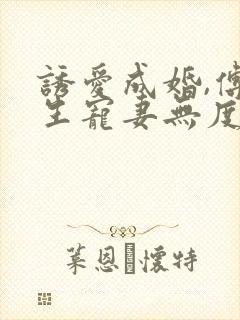 誘愛成婚,傅
生寵妻無度
葉恩 懷特